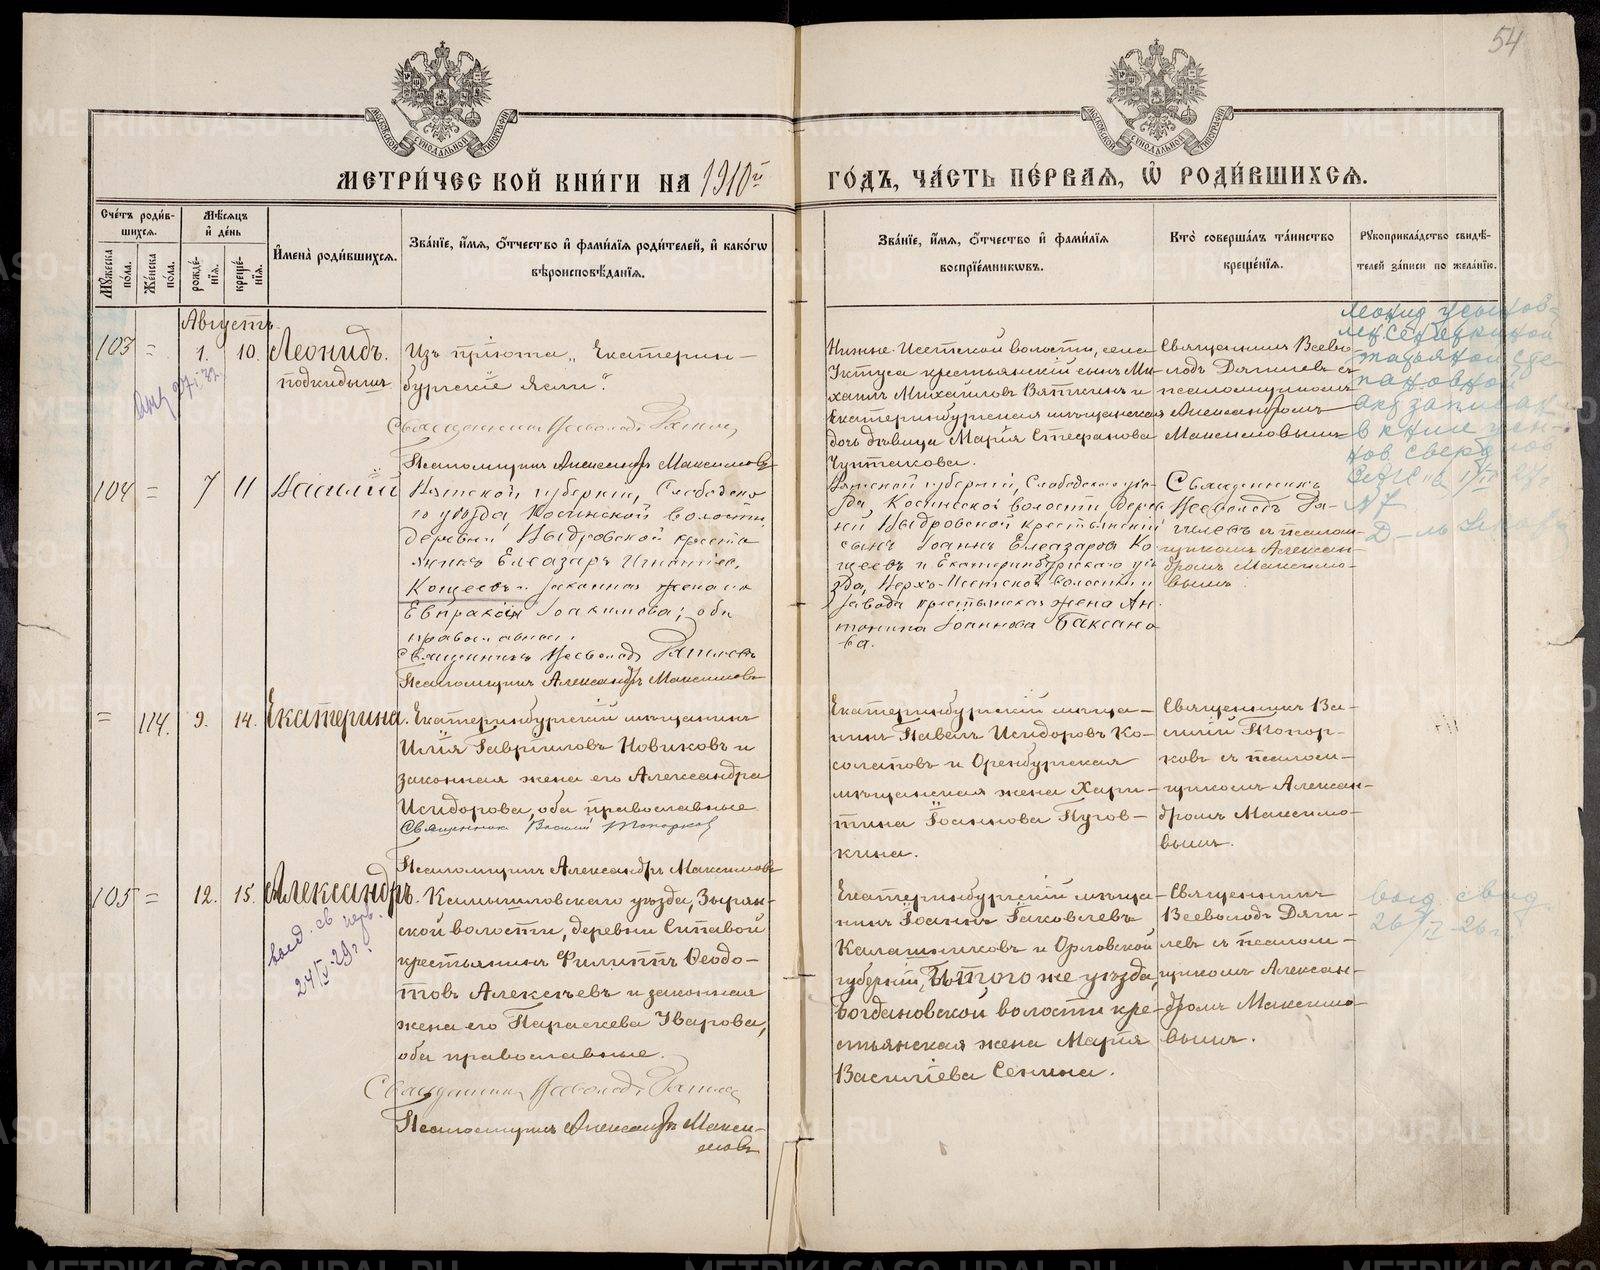 54
МОСКОВСКОЙ СѴНОДАЛЬНОЙ ТИПОГРАФІИ
МОСКОВСКОЙ СѴНОДАЛЬНОЙ ТИПОГРАФІИ
МЕТРИ́ЧЕСКОЙ КНИ́ГИ НА 1910й ГО́ДЪ, ЧА́СТЬ ПЕ́РВАѦ, Ѡ҆ РОДИ́ВШИХСѦ.
Сче́тъ роди́вшихсѧ.
Мѹ́жеска по́ла.
Же́нска по́ла.
Мѣ́сѧцъ и҆ де́нь
рожде́нїѧ.
креще́нїѧ.
И҆мена̀ роди́вшихсѧ.
Зва́нїе, и҆́мѧ, ѻ҆́тчество и҆ фами́лїѧ роди́телей, и҆ како́гѡ
вѣроисповѣ́данїѧ.
Зва́нїе, и҆́мѧ, ѻ҆́тчество и҆ фами́лїѧ
воспрїе́мникѡвъ.
Кто̀ соверша́лъ та́инство
креще́нїѧ.
Рѹкоприкла́дство свидѣ́-
телей за́писи по жела́нїю.
Августъ.
103 = 1. 10. Леонидъ.
подкидышъ
Изъ пріюта „Екатерин-
бургскіе ясли".
Священникъ Всеволодъ Дягилевъ
Псаломщикъ Александръ Максимовъ
Нижне-Исетской волости, села
Уктуса крестьянскій сынъ Ми-
хаилъ Михаиловъ Вяткинъ и
Екатеринбургская мѣщанская
дочь дѣвица Марія Стефанова
Священникъ Всево-
лодъ Дягилевъ съ
псаломщикомъ
Александромъ
Максимовымъ
Леонид усынов-
лен
Татьяной Сте
пановной
акт записан
в книге усы-
нов. Сверд
№ 7
104 = 7 11 Василій
Вятской губерніи, Слободска-
го уѣзда, Косинской волости,
деревни Выдровской кресть
янинъ Елеазаръ Игнатіевъ
Кощеевъ и законная жена его
Евпраксія Іоакимова; оба
православные.
Священникъ Всеволодъ Дягилевъ
Псаломщикъ Александръ Максимовъ
Вятской губерніи, Слободского уѣз-
да, Косинской волости, дерев-
ни Выдровской крестьянскій
сынъ Іоаннъ Елеазаровъ Ко
щеевъ и Екатеринбургскаго уѣ
зда, Верхъ-Исетской волости и
завода крестьянская жена Ан-
тонина Іоаннова Баксано
ва.
Священникъ
Всеволодъ Дя-
гилевъ съ псалом-
щикомъ Алексан-
дромъ Максимо-
вымъ
= 114. 9. 14. Екатерина.
Екатеринбургскій мѣщанинъ
Илія Гавріиловъ Новиковъ и
законная жена его Александра
Исидорова, оба православные
Священникъ Василій Топорковъ
Псаломщикъ Александръ Максимовъ
Екатеринбургскій мѣща-
нинъ Павелъ Исидоровъ Ко-
солаповъ и Оренбургская
мѣщанская жена Хари-
тина Іоаннова Пугов-
кина.
Священникъ Ва-
силій Топор-
ковъ съ псалом-
щикомъ Алексан-
дромъ Максимо-
вымъ.
105 = 12. 15. Александръ.
выд. св.
24/IV-29 г.
Камышловскаго уѣзда, Зырян-
ской волости, деревни Ситовой
крестьянинъ Филиппъ Ѳеодо-
товъ Алексѣевъ и законная
жена его Параскева Уварова,
оба православные.
Священникъ Всеволодъ Дягилевъ
Псаломщикъ Александръ Макси-
мовъ
Екатеринбургскій мѣща-
нинъ Іоаннъ Іаковлевъ
Калашниковъ и Орловской
губерніи, и того же уѣзда,
Богдановской волости кре-
стьянская жена Марія
Василіева Сенина.
Священникъ
Всеволодъ Дяги-
левъ съ псалом-
щикомъ Алексан-
дромъ Максимо-
вымъ.
выд. свид.
26/II-26 г.
METRIKI.GASO-URAL.RU